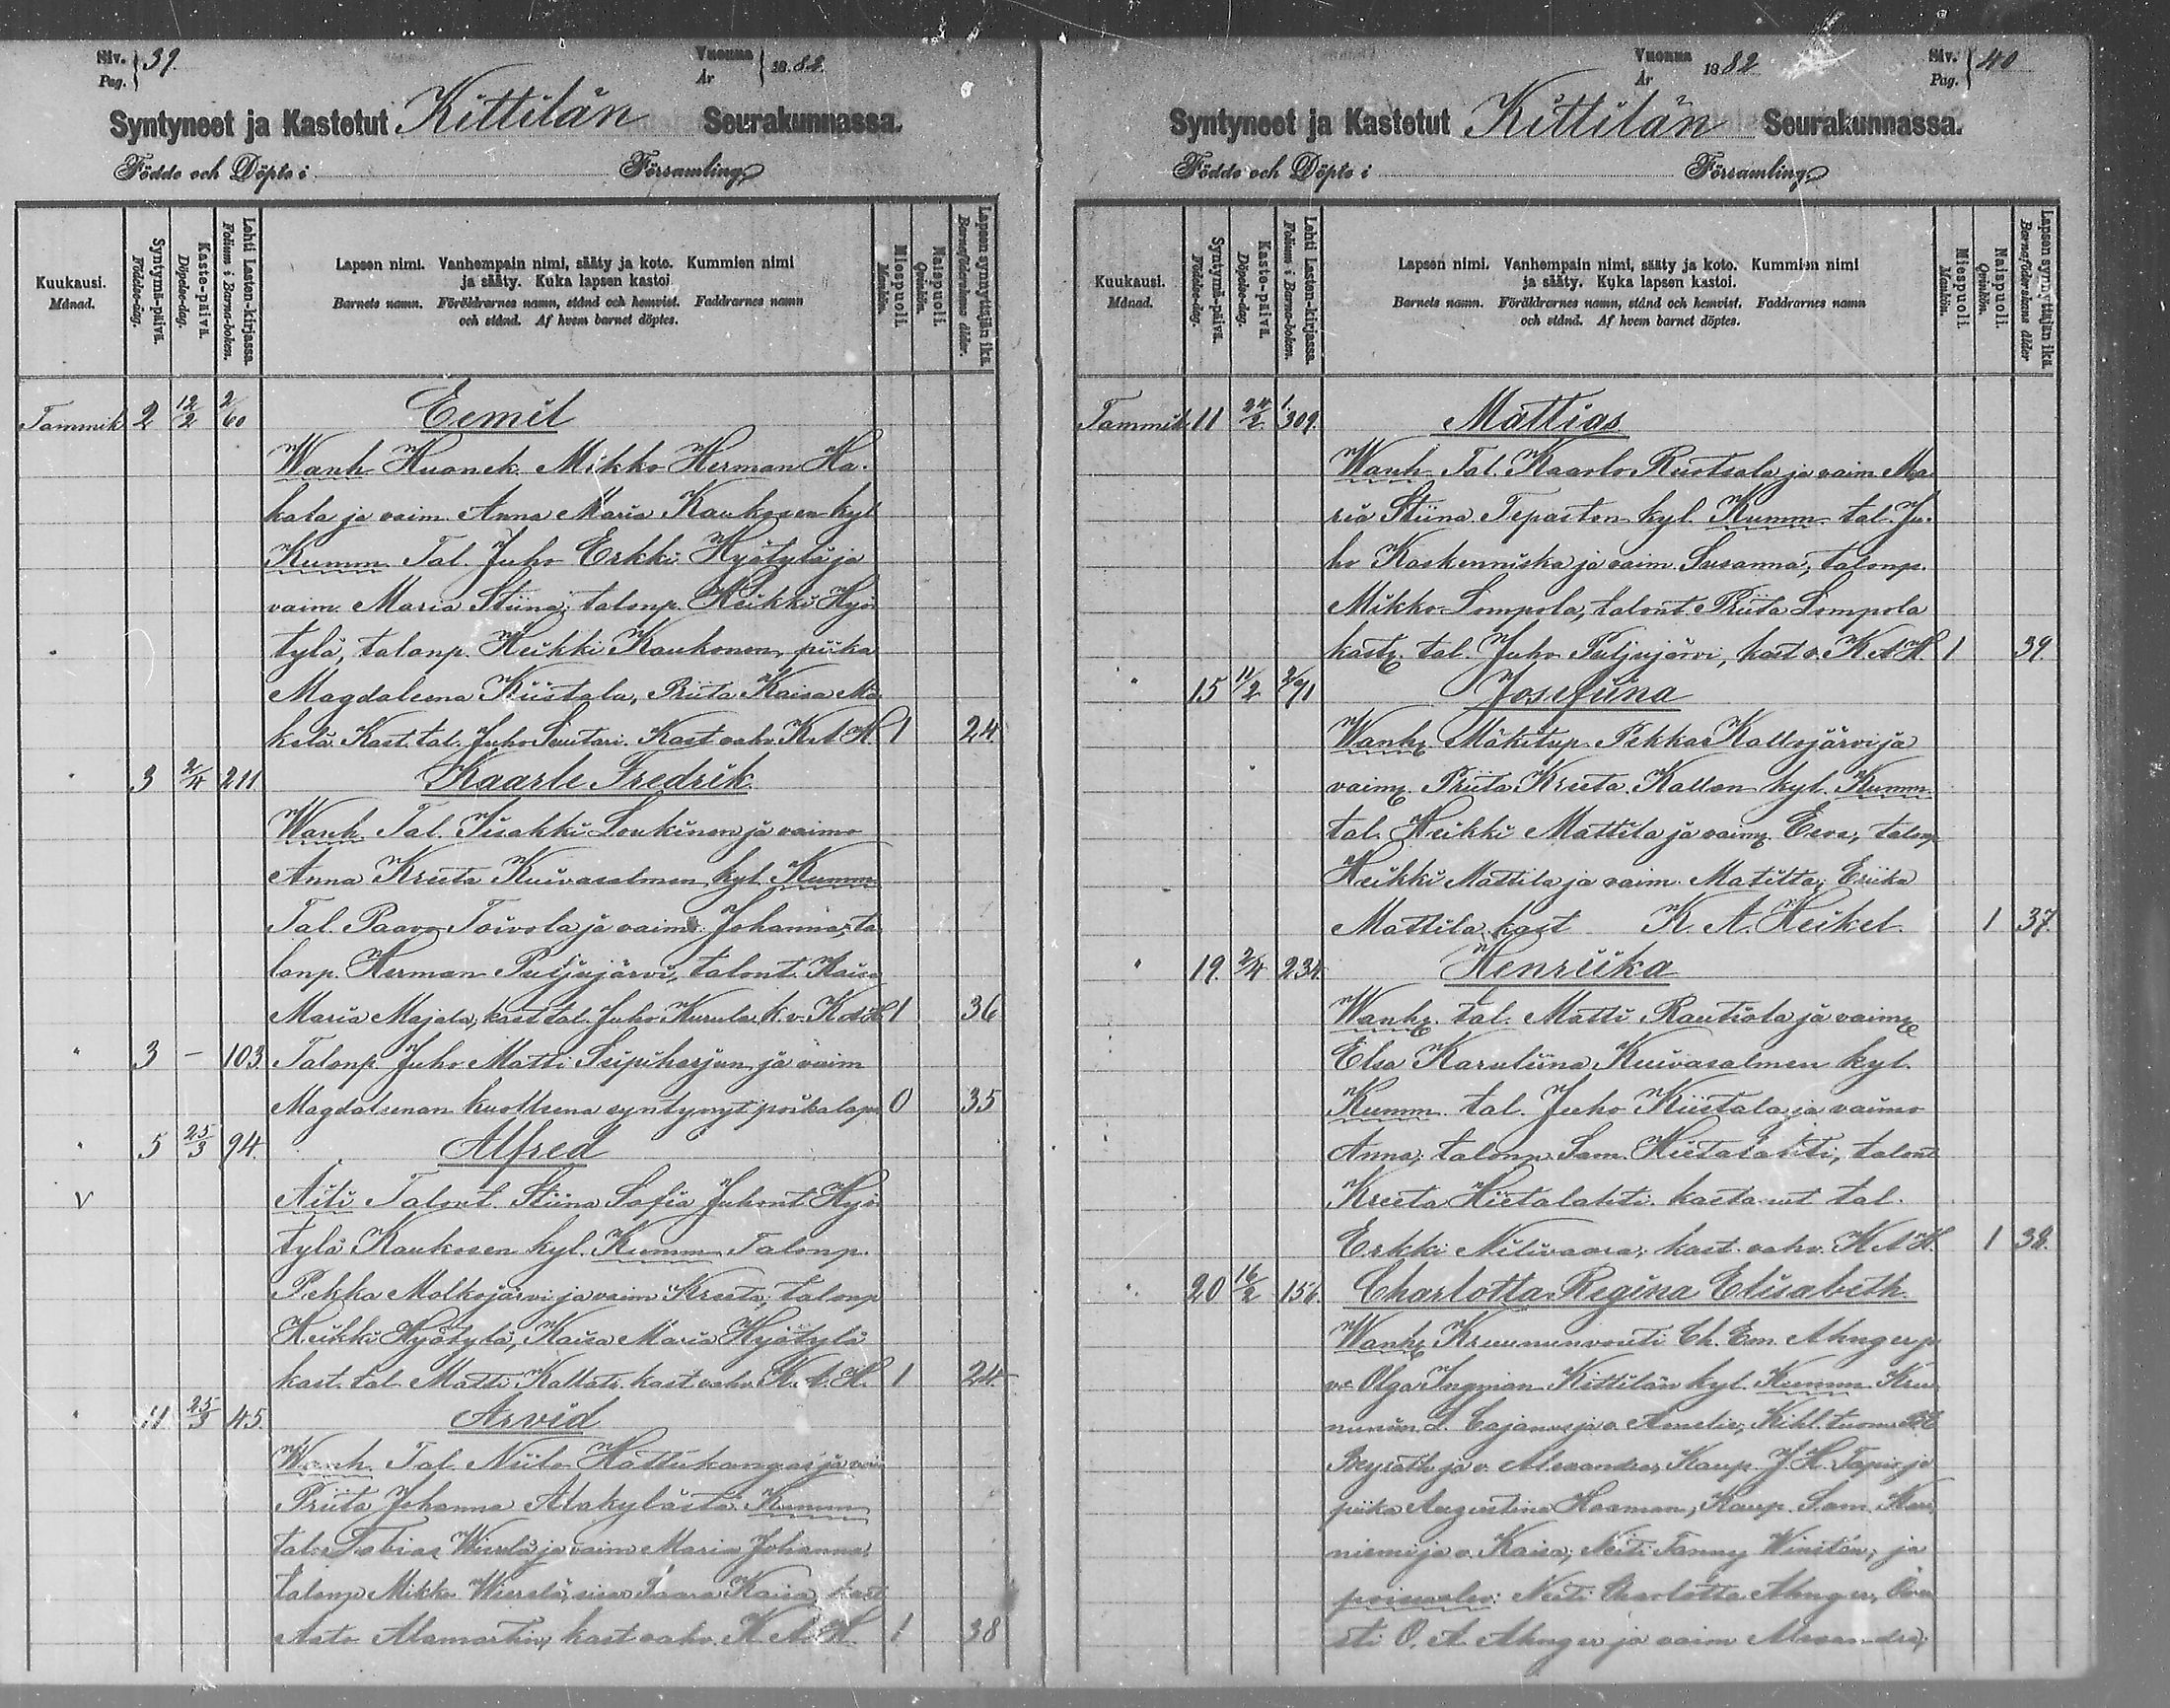 Siv. Pag. 39.
Vuonna År 1882.
Syntyneet ja Kastetut Kittilän Seurakunnassa.
Födde och Döpte i Församling
Kuukausi. Månad.
Syntymä-päivä. Födelse-dag.
Kaste-päivä. Döpelse-dag.
Lehti Lasten-kirjassa. Folium i Barna-boken.
Lapsen nimi. Vanhempain nimi, sääty ja koto. Kummien nimi
ja sääty. Kuka lapsen kastoi.
Barnets namn. Föräldrarnes namn, stånd och hemvist. Faddrarnes namn
och stånd. Af hvem barnet döptes.
Miespuoli. Mankön.
Naispuoli. Qvinkön.
Lapsen synnyttäjän ikä. Barnaföderskans ålder.
Tammik 2 12/2 2/60 Eemil
Wanh Huonek. Mikko Herman Ha-
kala ja vaim. Anna Maria Kaukosen kyl
Kumm Tal. Juho Erkki Hyötylä ja
vaim. Maria Stiina; talonp. Heikki Hyö
tylä, talonp. Heikki Kaukonen, piika
Magdaleena Kiistala, Priita Kaisa Mä
kelä. Kast. tal. Juho Suutari. Kast vahv. K A H. 1 24.
" 3 2/4 211. Kaarle Fredrik.
Wanh. Tal. Iisakki Loukinen ja vaimo
Anna Kreeta Kuivasalmen kyl. Kumm
Tal. Paavo Toivola ja vaim. Johanna, ta
lonp. Herman Puljujärvi, talont. Kaisa
Maria Majala, kast tal. Juho Kurula, k. v. K A H. 1 36
" 3 – 103. Talonp. Juho Matti Seipiharjun ja vaim
Magdaleenan kuolleena syntynyt poikalaps 0 35
" 5 25/3 94. Alfred
v Äiti Talont. Stiina Sofia Juhont Hyö
tylä Kaukosen kyl. Kumm Talonp.
Pekka Molkojärvi ja vaim Kreeta, talonp
Heikki Hyötylä, Kaisa Maria Hyötylä
kast. tal. Matti Kallatu. kast vahv. K. A. H. 1 24.
" 11. 25/3 45. Arvid
Wanh. Tal. Niilo Hattukangas ja vai
Priita Johanna Alakylästä. Kumm
tal. Tobias Wierelä ja vaimo Maria Johanna,
talonp. Mikko Wierelä, sisar Saara Kaisa, kast
Aato Alamartin, kast vahv. K A H. 1 38
Vuonna År 1882
Siv. Pag. 40
Syntyneet ja Kastetut Kittilän Seurakunnassa.
Födde och Döpte i Församling
Kuukausi. Månad.
Syntymä-päivä. Födelse-dag.
Kaste-päivä. Döpelse-dag.
Lehti Lasten-kirjassa. Folium i Barna-boken.
Lapsen nimi. Vanhempain nimi, sääty ja koto. Kummien nimi
ja sääty. Kuka lapsen kastoi.
Barnets namn. Föräldrarnes namn, stånd och hemvist. Faddrarnes namn
och stånd. Af hvem barnet döptes.
Miespuoli. Mankön.
Naispuoli. Qvinkön.
Lapsen synnyttäjän ikä. Barnaföderskans ålder
Tammik 11 24/2 1/309. Mattias
Wanh Tal. Kaarlo Ruotsala ja vaim Ma
ria Stiina Tepaston kyl. Kumm tal. Ju-
ho Kaskenniska ja vaim. Susanna; talonp.
Mikko Lompola, talont. Priita Lompola
kast. tal. Juho Puljujärvi, kast v. K A H. 1 39.
" 15 11/2 2/71 Josefiina
Wanh. Mäkitup. Pekka Kallojärvi ja
vaim. Priita Kreeta Kallon kyl. Kumm.
tal. Heikki Mattila ja vaim. Eeva; talonp
Heikki Mattila ja vaim. Matilta; Eriika
Mattila, kast K. A. Heikel. 1 37.
" 19. 2/4 234. Henriika
Wanh. tal. Matti Rautiola ja vaim
Elsa Karuliina, Kuivasalmen kyl.
Kumm. tal. Juho Kiistala ja vaimo
Anna; talonp. Sam. Hietalahti, talont
Kreeta Hietalahti. kastanut tal.
Erkki Nilivaara; kast. vahv. K A H. 1 38.
" 20 16/2 156. Charlotta Regina Elisabeth.
Wanh. Kruununvouti Ch. Em. Ahnger ja
v. Olga Ingman Kittilän kyl. Kumm. Kru
nunim. L. Cajanus ja v. Amelie; Kihl. tuom.
ja v. Alexandra, Kaup. J. H. Tapio ja
piika Augustina Haaman; Kaup. Sam.
niemi ja v. Kaisa; Neiti Fanny Winstén; ja
poissaolev: Neiti Charlotta Ahnger, Över
sti O. A. Ahnger ja vaim Alexandra;